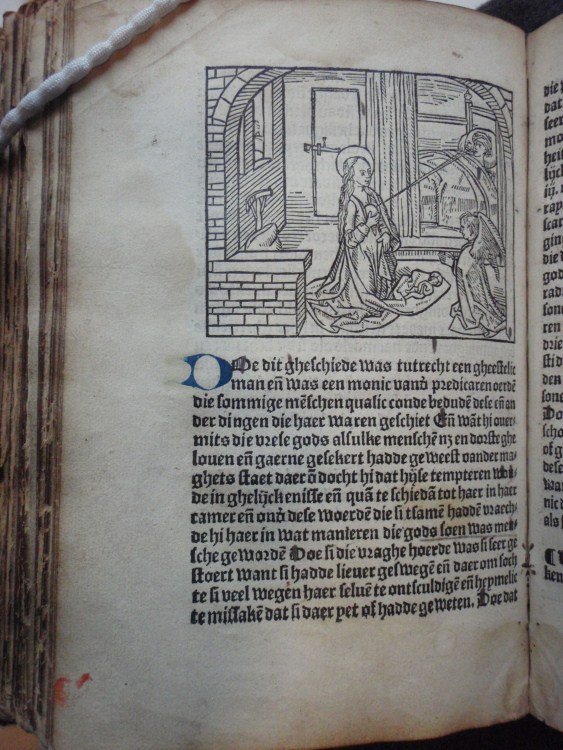 DOe dit gheschiede was tutrecht een gheestelic
man eñ was een monic vanð predicaren oerdē
die sommige mēschen qualic conde bedudē dese eñ an
der dingen die haer waren geschiet Eñ wāt hi ouer
mits die vrese gods alsulke menschen nz en dorste ghe
louen eñ gaerne gesekert hadde geweest vander ma
ghets staet daer ō docht hi dat hijse tempteren wou
de in ghelijckenisse eñ quā te schiedā tot haer in haer
camer eñ onð dese woerdē die si tsamē haddē vraech
de hi haer in wat manieren die gods soen was men
sche gewordē Doe si die vraghe hoerde was si seer ge
stoert want si hadde lieuer geswegē eñ daer om soch
te si veel wegen haer seluē te ontsculdigē eñ heymelic
te missakē dat si daer yet of hadde geweten. Doe dat
die v
dat
seer
mo
hei
lijck
iij.
rap
scar
ging
die
god
rad
son
ren
drie
sti d
den
song
Do
scho
of g
dese
wa
nic d
als
ken